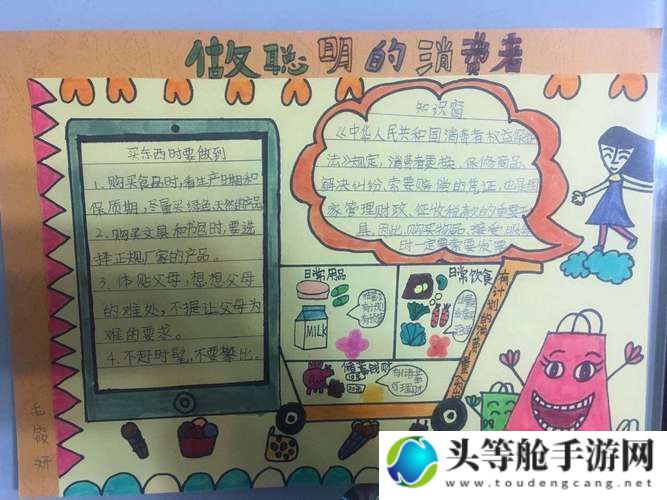 做聪明的消费者
买东西时要做到
1、购买食品时，看生产日期和
保质期，尽量买绿色、天然的产品
2、购买文具和书包时，要选
择正规厂家的产品。
3、体贴父母，想想父母
的难处，不提让父母为
难的要求。
4、不赶时髦，不要攀比。
知识窗
《中华人民共和国消费者权益保护
法》规定，消费者更换、保修商品、
解决纠纷、索要赔偿的凭证，也是国
家管理财政、征收税款的重要工
具。因此，购买物品、接受服务
时一定要索要发票
日常用品
MILK
日常饮食
储蓄钱财
有计划的消费
毛筱妍
头等舱手游网
www.toudengcang.net